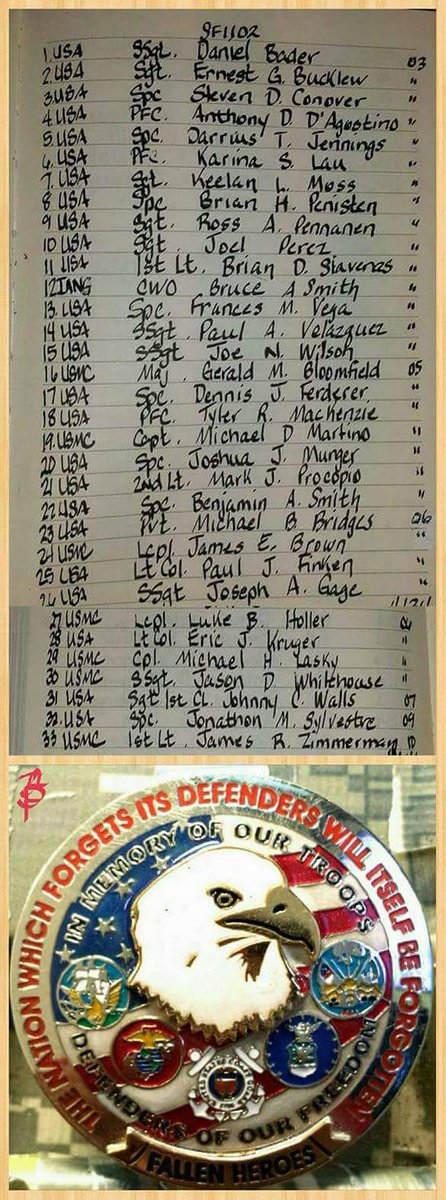 9F1102
1. USA SSgt. Daniel Bader 03
2. USA Sgt. Ernest G. Bucklew "
3. USA Spc Steven D. Conover "
4 USA PFC. Anthony D. D'Agostino "
5. USA Spc. Darrius T. Jennings "
6. USA Pfc. Karina S. Lau "
7. USA Sgt. Keelan L. Moss "
8 USA Spc. Brian H. Penisten "
9 USA Sgt. Ross A. Pennanen "
10 USA Sgt. Joel Perez "
11 USA 1st Lt. Brian D. Slavenas "
12 IANG CWO Bruce A Smith "
13. USA Spc. Frances M. Vega "
14 USA SSgt. Paul A. Velazquez "
15 USA SSgt Joe N. Wilson "
16 USMC Maj. Gerald M. Bloomfield 05
17 USA Spc. Dennis J. Ferderer "
18 USA PFC. Tyler R. Mackenzie "
19. USMC Capt. Michael D Martino "
20 USA Spc. Joshua J. Munger "
21 USA 2nd Lt. Mark J. Procopio "
22 USA Spc. Benjamin A. Smith "
23 USA Pvt. Michael B Bridges 06
24 USMC Lcpl. James E. Brown "
25 USA Lt Col. Paul J. Finken "
26 USA SSgt Joseph A. Gage
27 USMC Lcpl. Luke B. Holler
28 USA Lt Col. Eric J. Kruger "
29 USMC Cpl. Michael H. Lasky "
30 USMC SSgt. Jason D Whitehouse "
31 USA Sgt 1st Cl. Johnny C. Walls 07
32. USA Spc. Jonathon M. Sylvestre 09
33 USMC 1st Lt. James R. Zimmerman 10
THE NATION WHICH FORGETS ITS DEFENDERS WILL ITSELF BE FORGOTTEN
IN MEMORY OF OUR TROOPS
DEFENDERS OF OUR FREEDOM
FALLEN HEROES